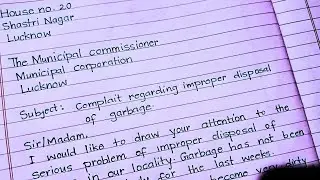 House no. 20
Shastri Nagar
Lucknow
The Municipal commissioner
Municipal corporation
Lucknow
Subject: Complait regarding improper disposal
of garbage
Sir/Madam,
I would like to draw your attention to the
serious problem of improper disposal of
in our locality. Garbage has not been
for the last weeks.
become very dirty